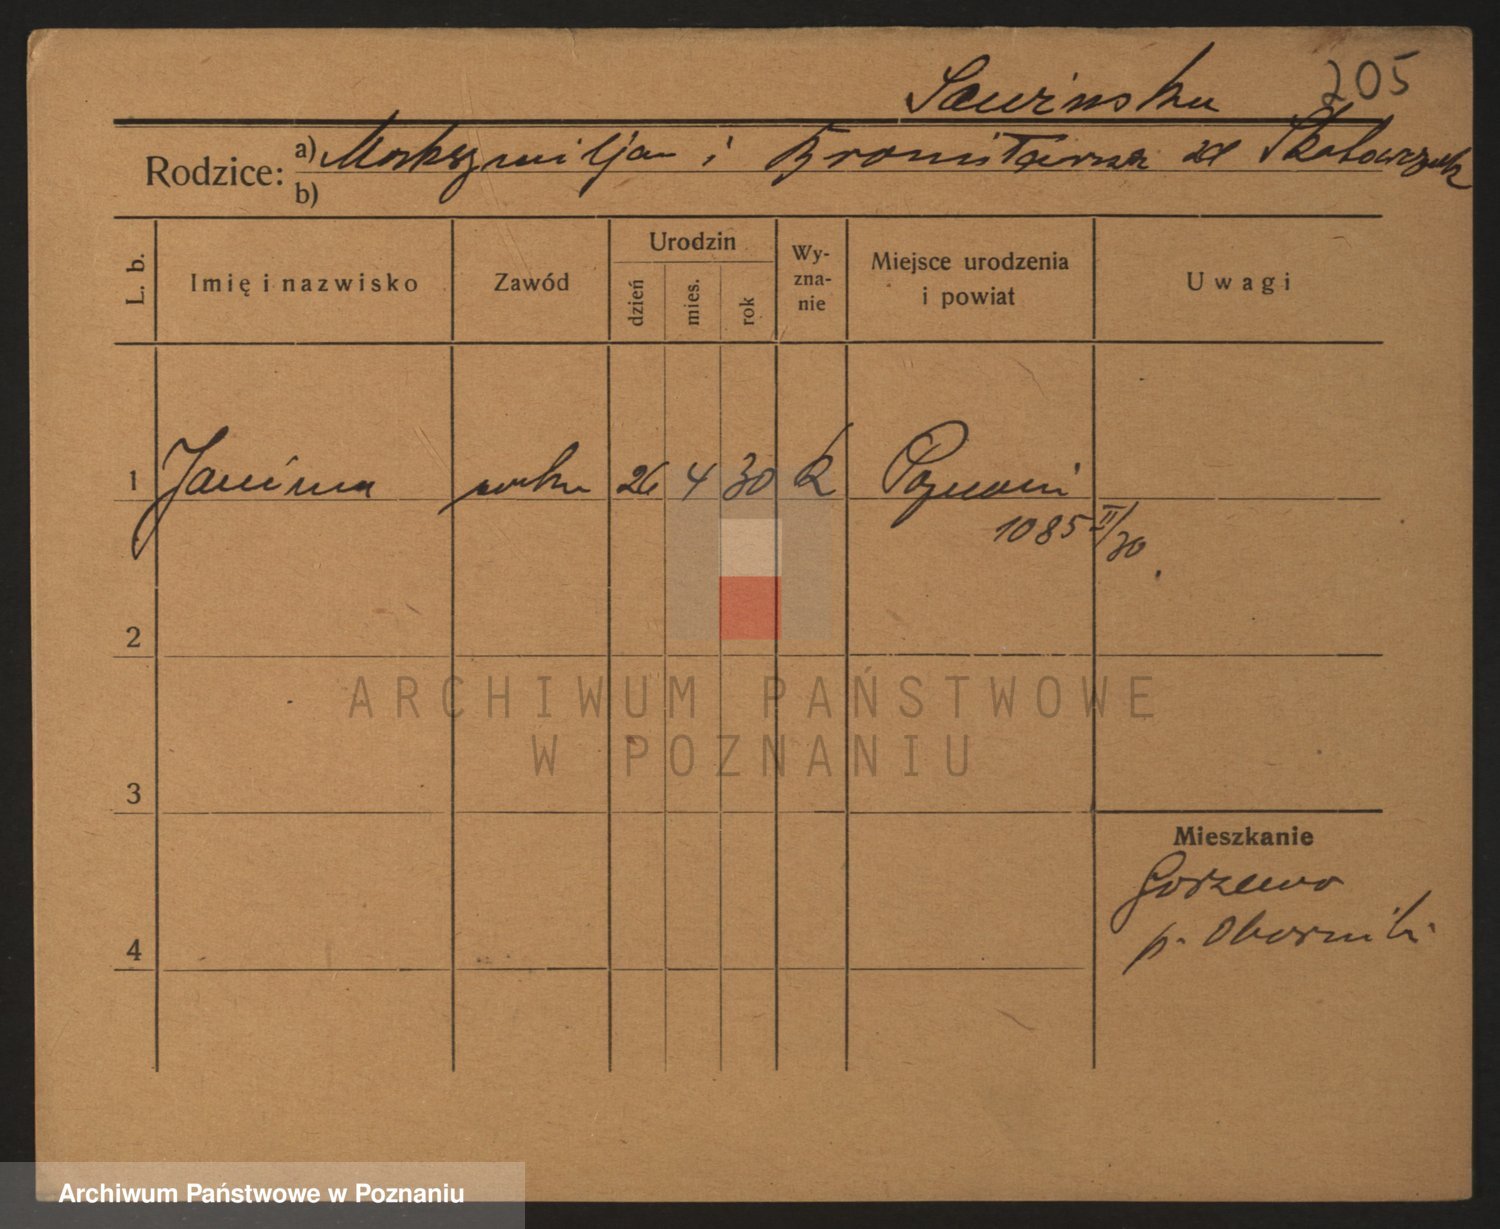 Sawinska 205
Rodzice: a) Maksymiljan i Bronisława z
b)
L. b. Imię i nazwisko Zawód Urodzin dzień mies. rok Wyznanie Miejsce urodzenia i powiat Uwagi
1 Janina córka 26 4 30 k Poznań
1085 II/30
2
ARCHIWUM PAŃSTWOWE
W POZNANIU
3
Mieszkanie
Gorzewo
p. Oborniki
4
Archiwum Państwowe w Poznaniu